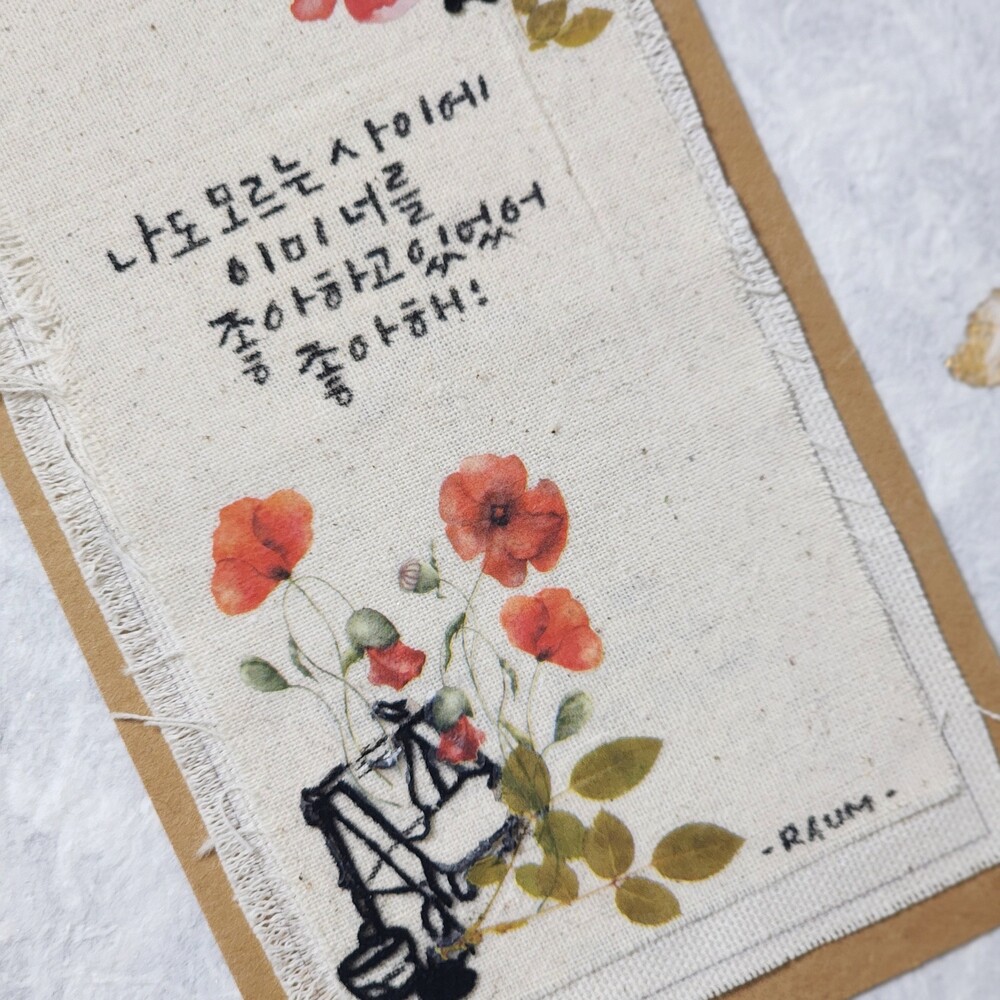 나도 모르는 사이에
이미 너를
좋아하고 있었어
좋아해!
-RAUM-